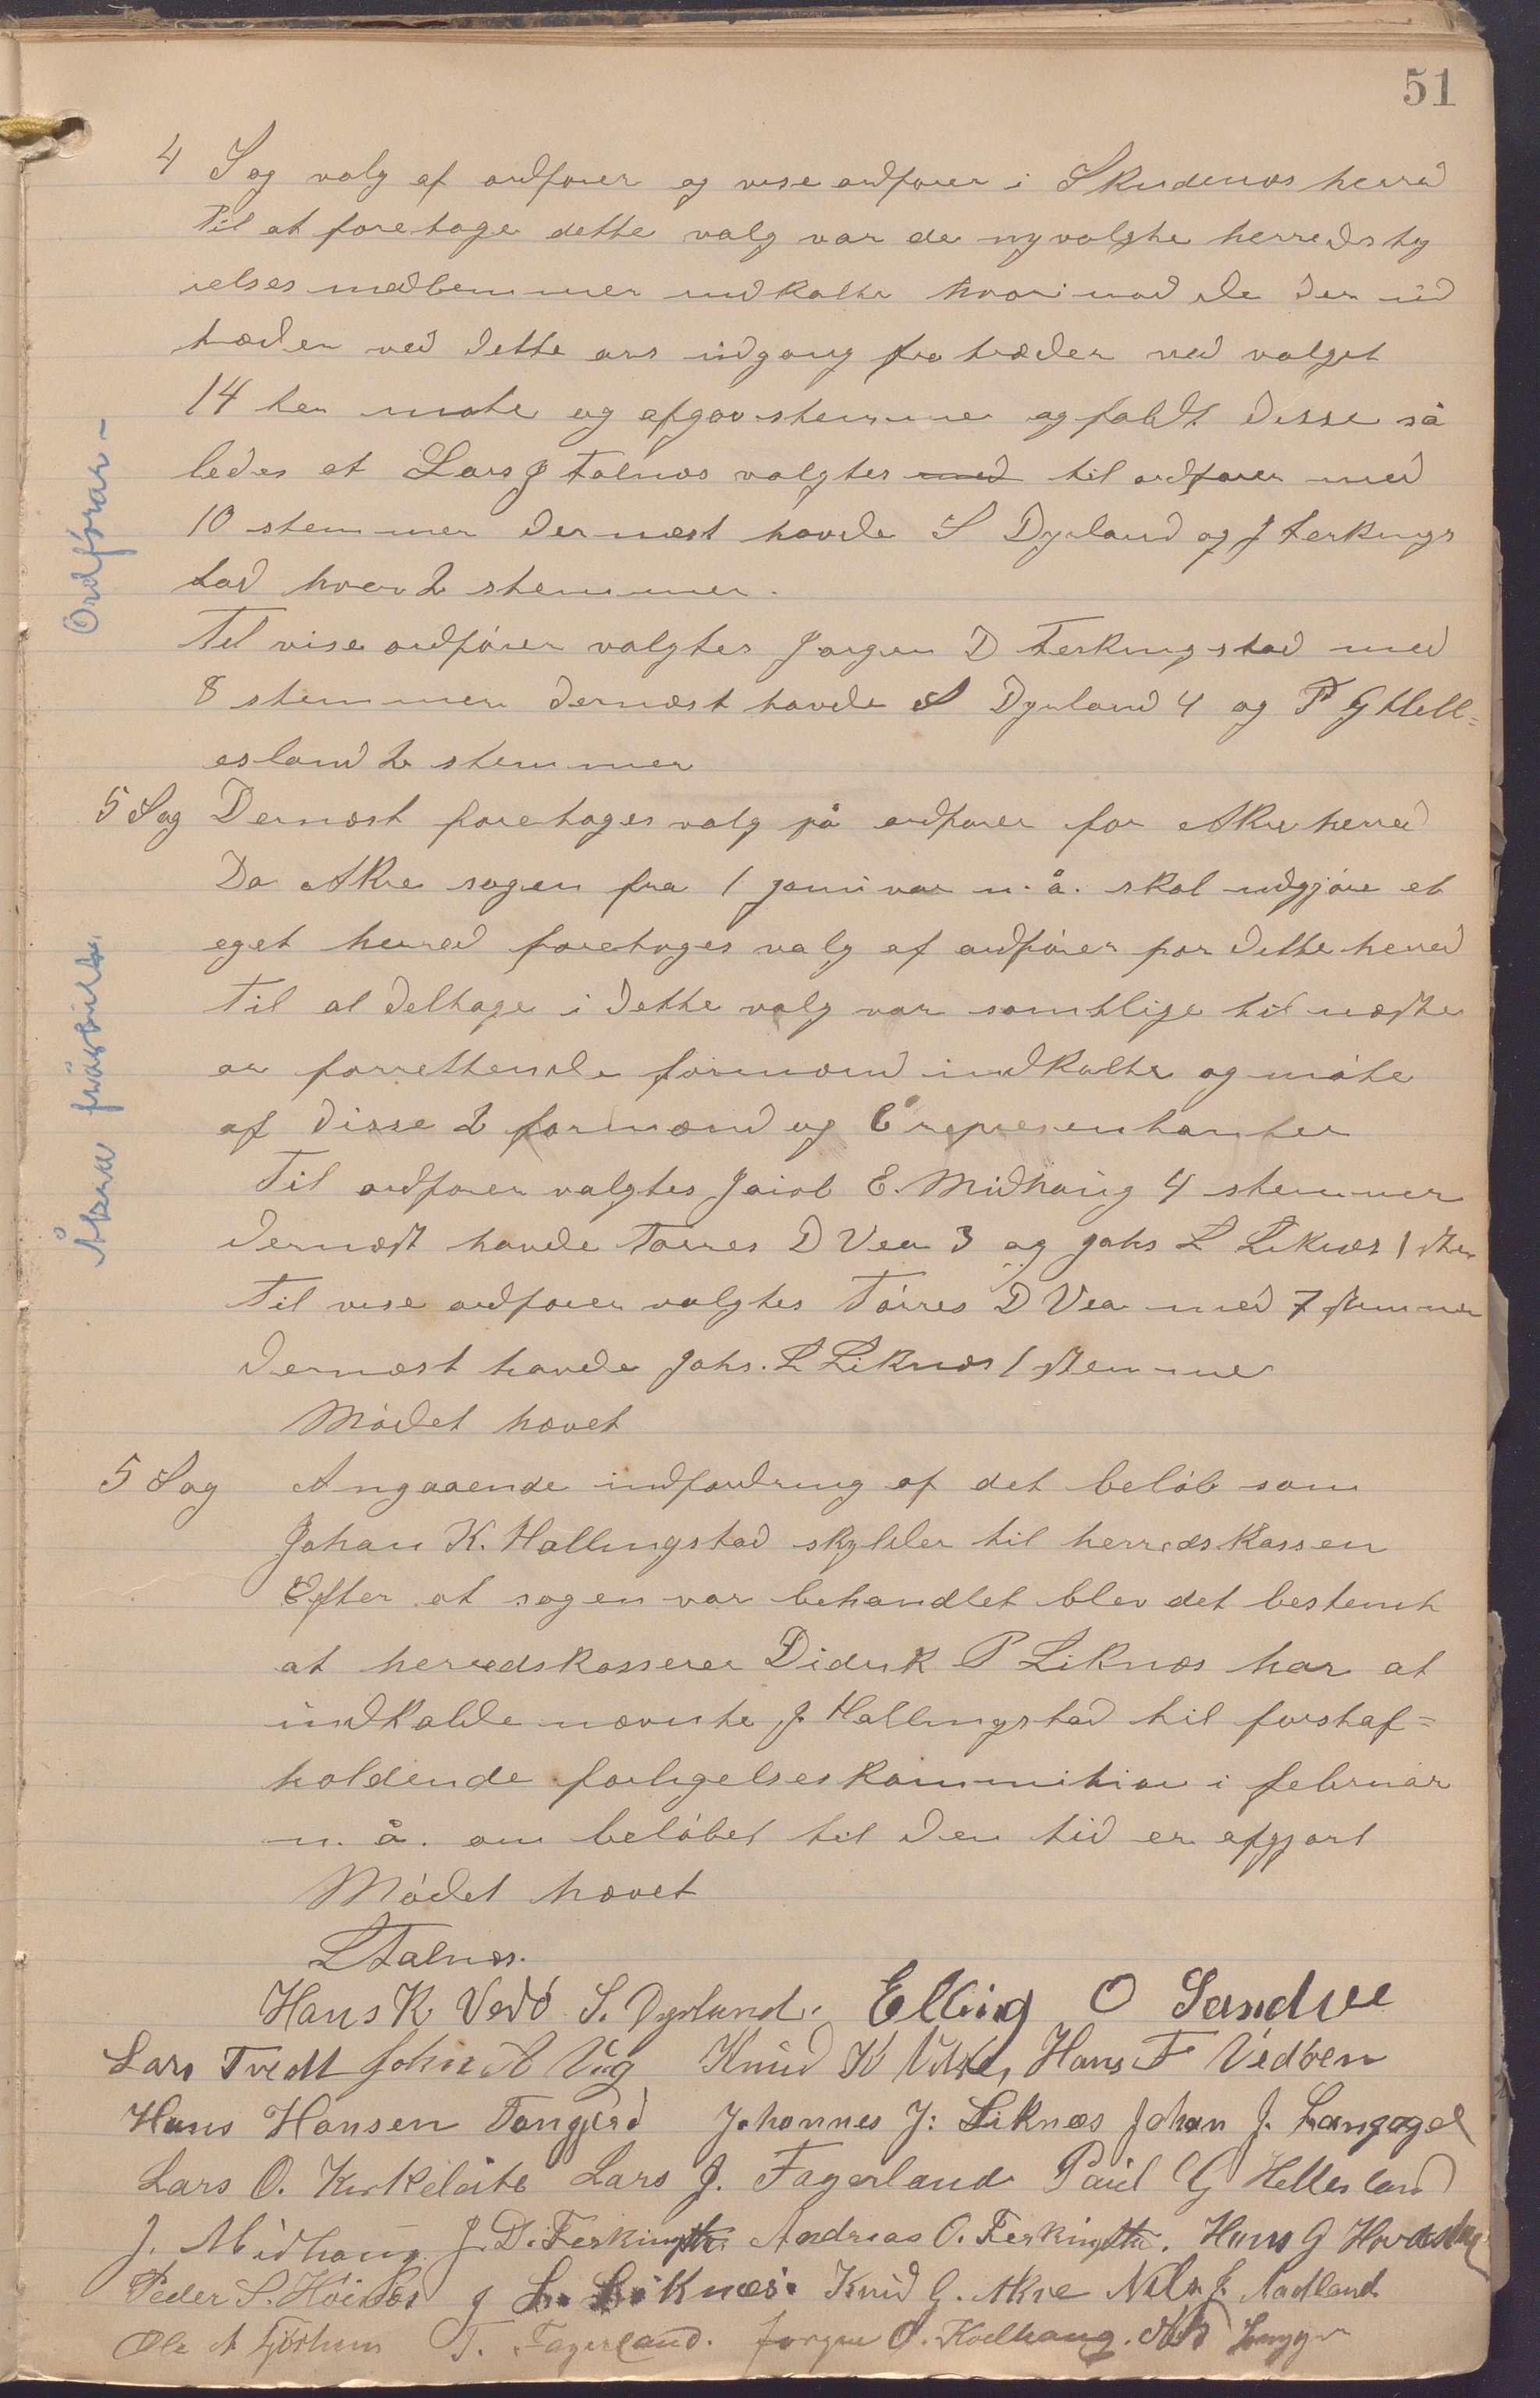 51
4 Sag valg af ordfører og vise ordfører i Skudenæs herred
Til at foretage dette valg var de nyvalgte herredsty
relses medlemmer indkalte hvorimod de der ud
træder ved dette års udgang fratræder ved valget
14 ten møte og afgav stemmer og faldt disse så
ledes at Lars J Falnæs valgtes med til ordfører med
10 stemmer dernæst havde S Dyrland og J Ferkings
tad hver 2 stemmer.
Til vise ordfører valgtes Jørgen D Ferkingstad med
8 stemmer dernæst havde S Dyrland 4 og P G Hell=
esland 2 stemmer
5 Sag Dernæst foretages valg på ordfører for Akre herred
Da Akre sogen fra 1 januvar n. å. skal udgjøre et
eget herred foretages valg af ordfører for dette herred
Til at deltage i dette valg var samtlige til næste
år forrettende formænd indkalte og møte
af disse 2 formænd og 6 representanter
Til ordfører valgtes Jacob E. Midhaug 4 stemmer
dernæst havde Tørres D Vea 3 og Johs L Liknes 1 ste
Til vise ordfører valgtes Tørres D Vea med 7 stemmer
dernæst havde Johs. L Liknæs 1 stemme
Mødet hævet
5 Sag Angaaende indfordring af det beløb som
Johan K. Hallingstad skylder til herredskassen
Efter at sagen var behandlet blev det bestemt
at herredskasserer Didrik P Liknæs har at
indkalde nævnte J. Hallingstad til førstaf=
holdende forligelseskommition i februar
n. å. om beløbet til den tid er afgjort
Mødet hævet
L Falnes.
Hans K Vedø S. Dyrland. Elling O Sandve
Lars Tvedt John A Vig Knud K Vikre, Hans F Vedøen
Hans Hansen Tangjerd Johannes J: Liknæs Johan J. Langaget
Lars O. Kirkeleite Lars J. Fagerland Paul G Hellesland
J. Midhaug J. D. Ferkingst. Andreas O. Ferkingsta. Hans G Hovdastad
Peder S. Høines J L. Liknes. Knud G. Akre Nils J. Aadland
Ole A Tjøstheim T. Fagerland. Jørgen O. Kvelhaug.
Ordförar -
Åkra fråskilt.